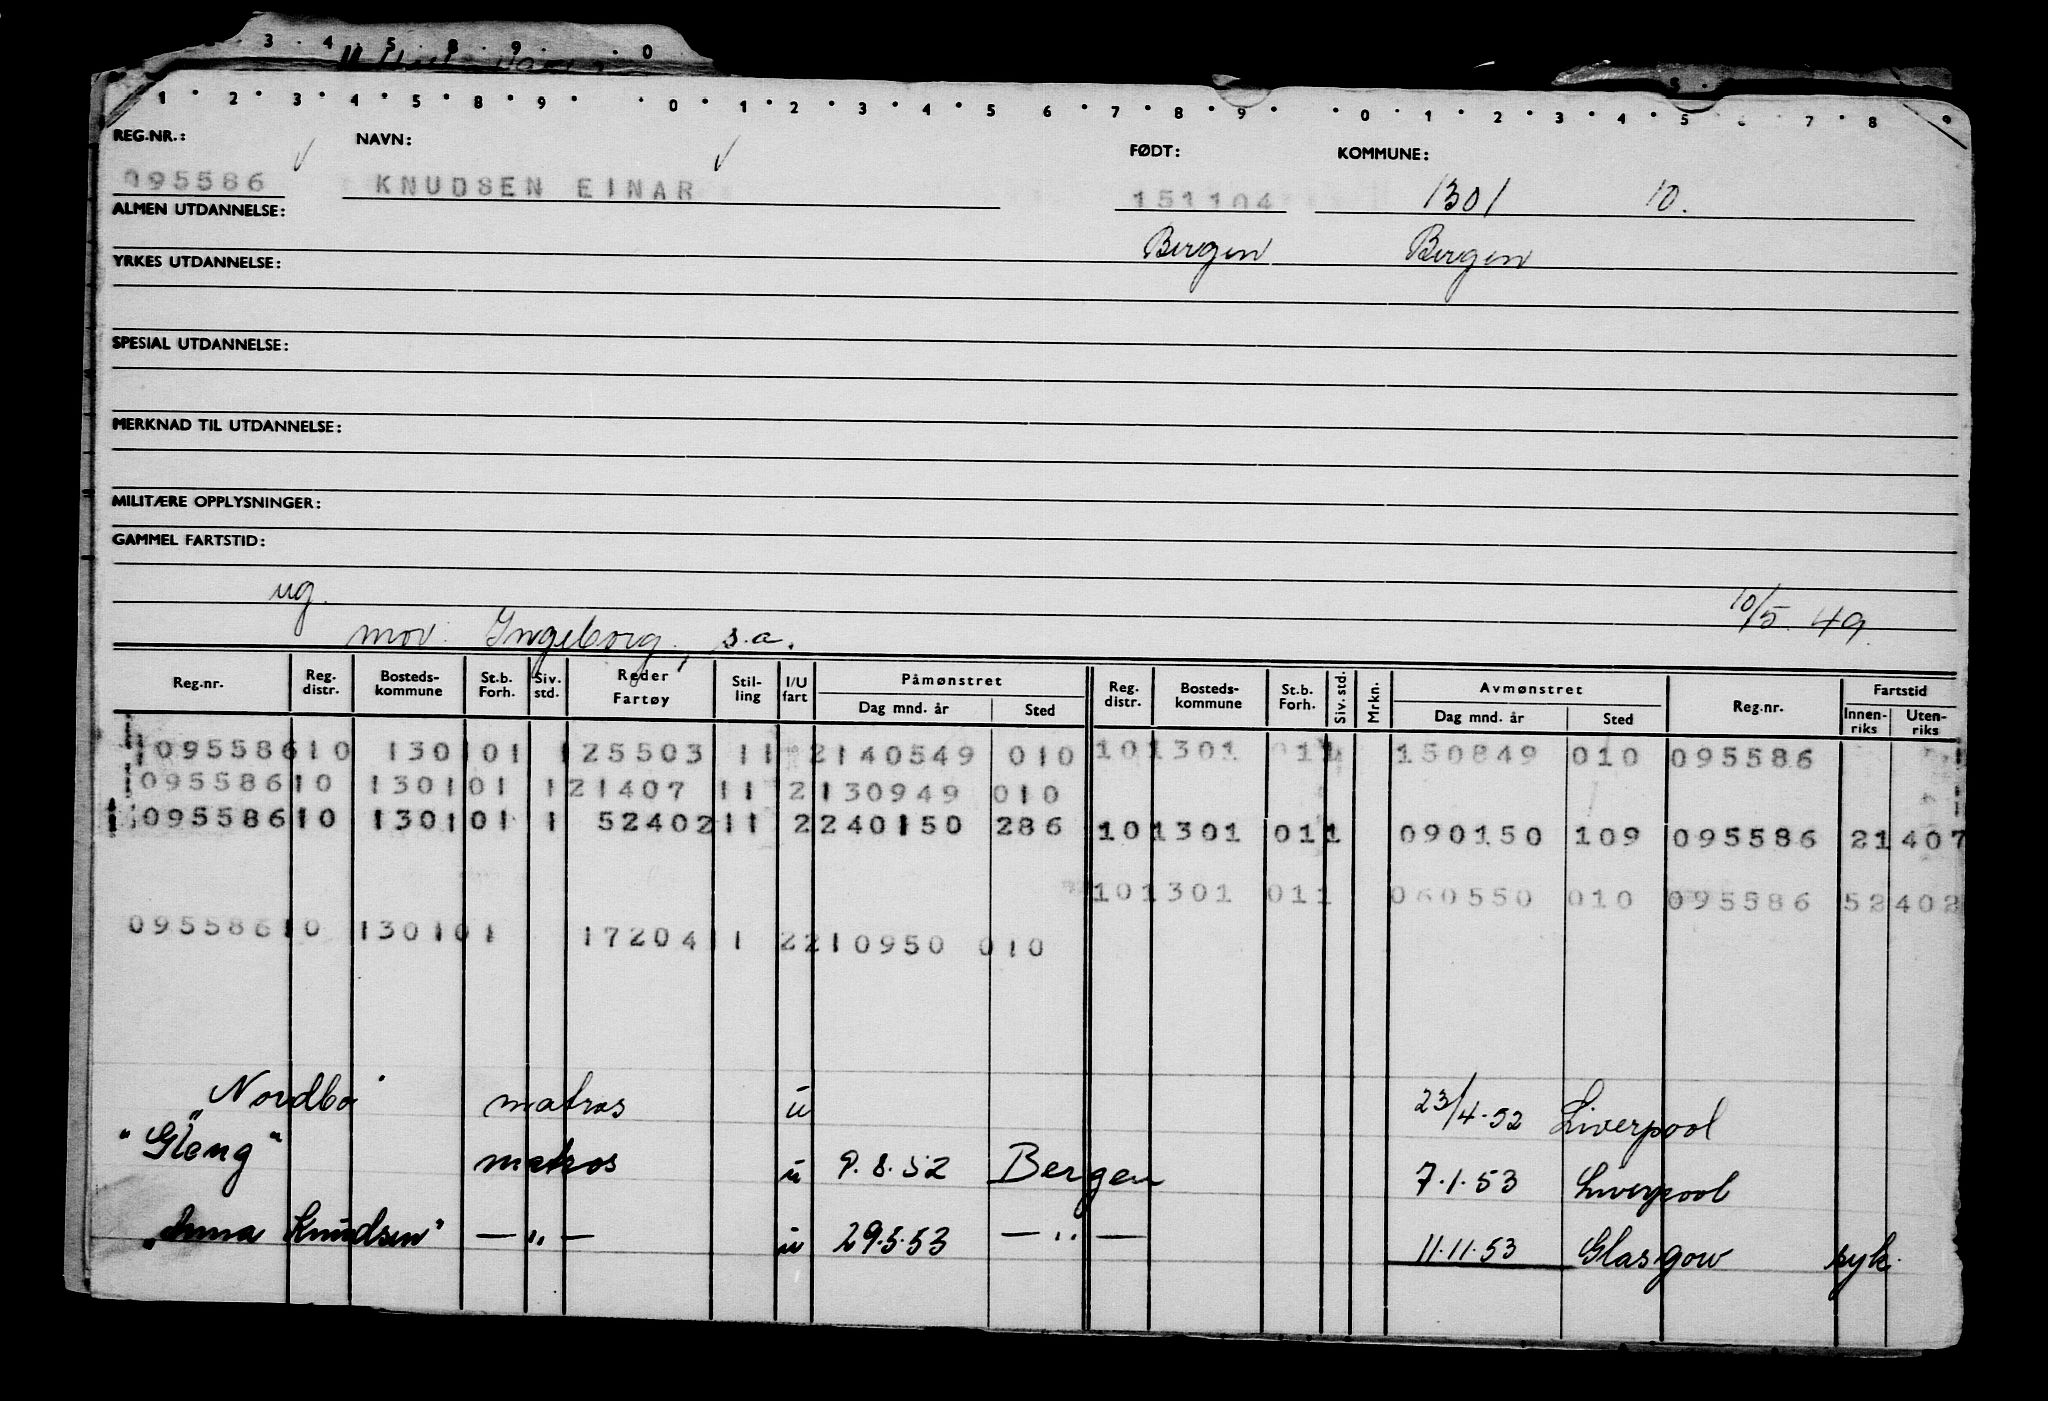 3 · 4 · 5 · 8 · 9 · · 0
1 · 2 · 3 · 4 · 5 · 8 · 9 · · 0 · 1 · 2 · 3 · 4 · 5 6 · 7 · 8 · 9 · · 0 · 1 · 2 · 3 · 4 · 5 7 · 8 · 9
REG.NR.: NAVN: FØDT: KOMMUNE:
095586 KNUDSEN EINAR 151104 1301 10.
ALMEN UTDANNELSE:
Bergen Bergen
YRKES UTDANNELSE:
SPESIAL UTDANNELSE:
MERKNAD TIL UTDANNELSE:
MILITÆRE OPPLYSNINGER:
GAMMEL FARTSTID:
ug.
mor: Ingeborg, s.a. 10/5. 49.
Reg.nr. Reg. distr. Bosteds-kommune St.b. Forh. Siv. std. Reder Fartøy Stil-ling I/U fart Påmønstret Dag mnd. år Sted Reg. distr. Bosteds-kommune St.b. Forh. Siv.std. Mrkn. Avmønstret Dag mnd. år Sted Reg.nr. Fartstid Innen-riks Uten-riks
095586 10 1301 01 1 25503 11 2 140549 010 10 1301 01 1 150849 010 095586
095586 10 1301 01 1 21407 11 2 130949 010
095586 10 1301 01 1 52402 11 2 240150 286 10 1301 01 1 090150 109 095586 21407
10 1301 01 1 060550 010 095586 52402
095586 10 1301 01 17204 11 2 210950 010
"Nordbo" matros u 23/4-52 Liverpool
"Gleng" matros u 9.8.52 Bergen 7.1.53 Liverpool
"Anna Knudsen" — " — u 29.5.53 — " — 11.11.53 Glasgow syk.